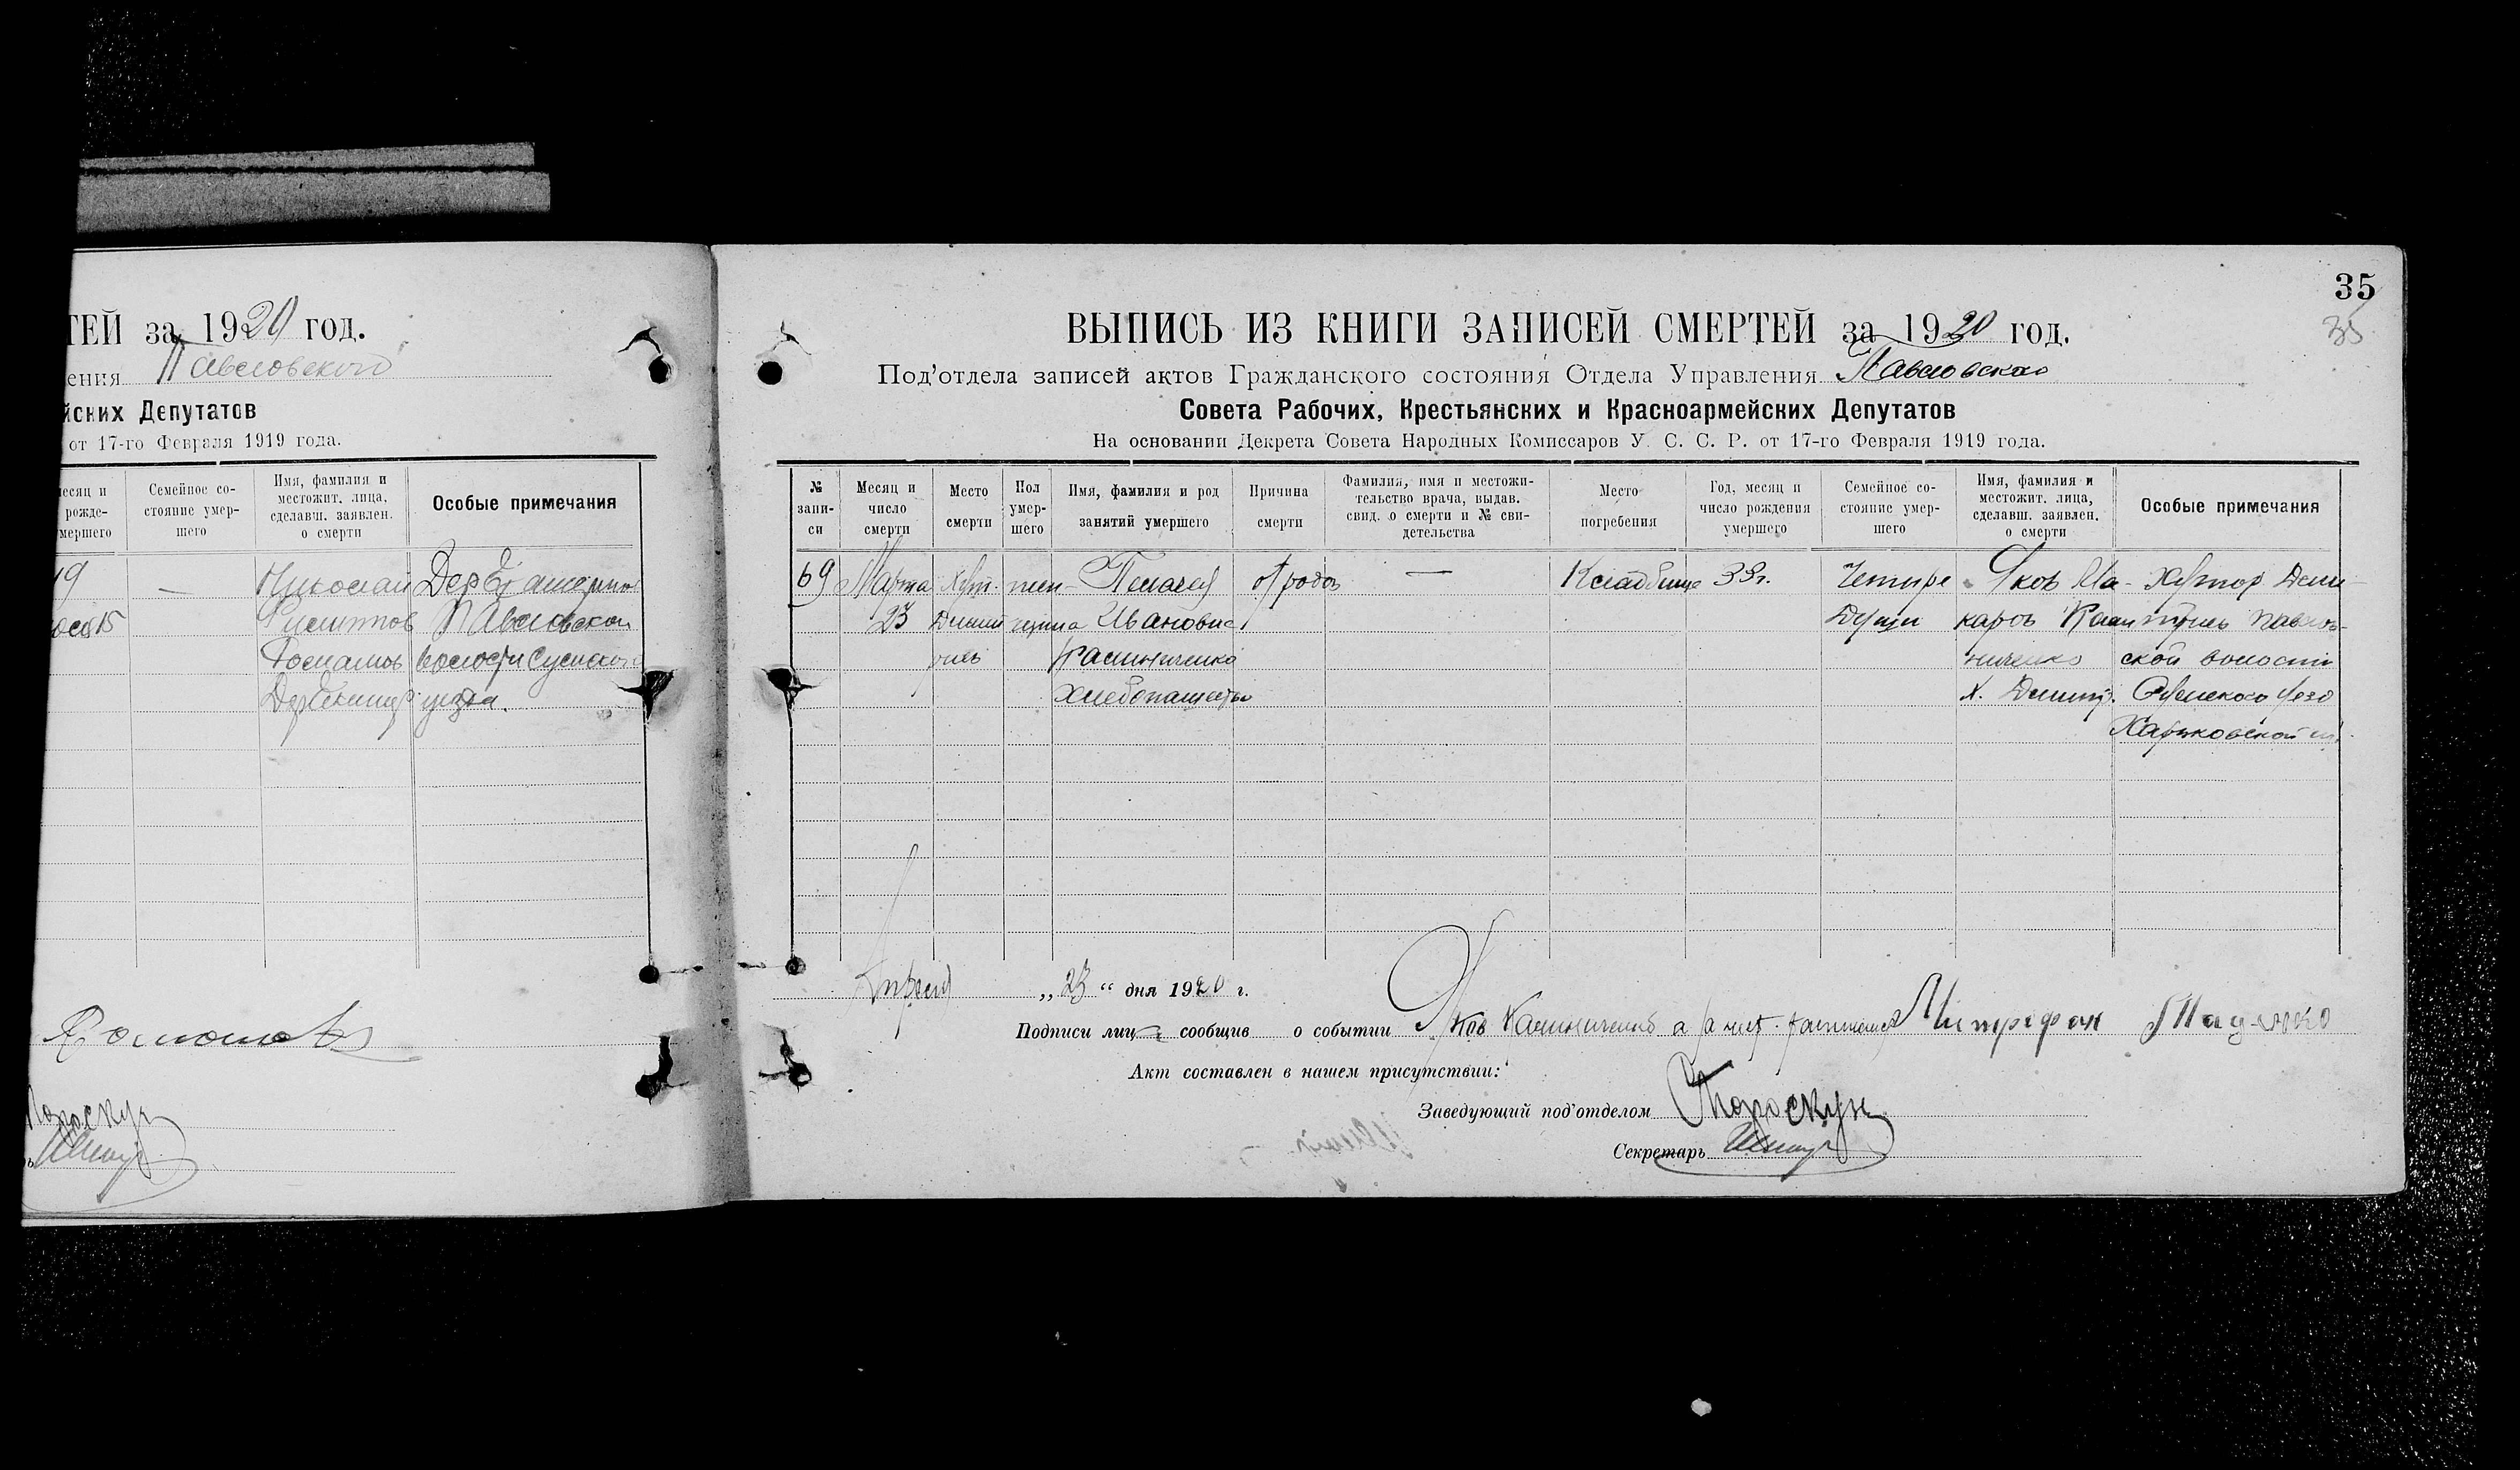 ТЕЙ за 1920 год.
ения Павловской
йских Депутатов
от 17-го Февраля 1919 года.
есяц и
рожде-
мершего
Семейное со-
стояние умер-
шего
Имя, фамилия и
местожит. лица,
сделавш. заявлен.
о смерти
Особые примечания
19
15
—
Николай
Дер
Павловской
волости Сумского
уезда.
35
35
ВЫПИСЬ ИЗ КНИГИ ЗАПИСЕЙ СМЕРТЕЙ за 1920 год.
Под'отдела записей актов Гражданского состояния Отдела Управления Павловского
Совета Рабочих, Крестьянских и Красноармейских Депутатов
На основании Декрета Совета Народных Комиссаров У. С. С. Р. от 17-го Февраля 1919 года.
№
запи-
си
Месяц и
число
смерти
Место
смерти
Пол
умер-
шего
Имя, фамилия и род
занятий умершего
Причина
смерти
Фамилия, имя и местожи-
тельство врача, выдав.
свид. о смерти и № сви-
детельства
Место
погребения
Год, месяц и
число рождения
умершего
Семейное со-
стояние умер-
шего
Имя, фамилия и
местожит. лица,
сделавш. заявлен.
о смерти
Особые примечания
69
Марта
23
Хут.
жен-
щина
Пелагея
Ивановна
Калиниченко
Хлебопашество
от родов
—
Кладбище
33г.
Четыре
Души
Яков Ма-
каров Кали
ниченко
х. Дмитр.
Хутор Дми
Павлов-
ской волости
Сумского уезд
Харьковской
Апреля „23“ дня 1920 г.
Подписи лица сообщив о событии Яков Калиниченко а Митрофан
Акт составлен в нашем присутствии:
Заведующий под'отделом
Секретарь